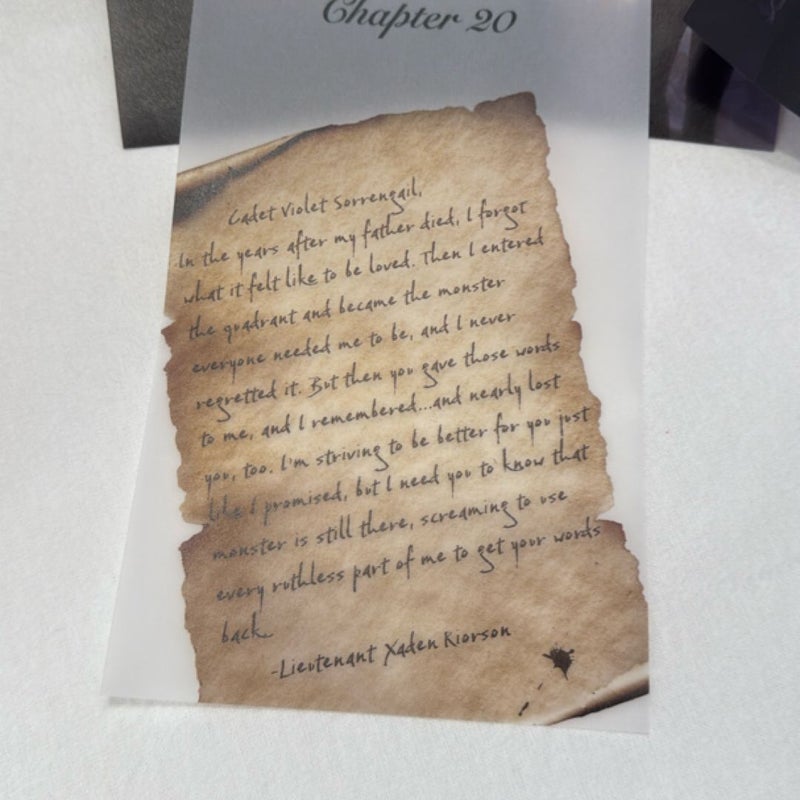 Chapter 20
Cadet Violet Sorrengail,
In the years after my father died, I forgot
what it felt like to be loved. Then I entered
the quadrant and became the monster
everyone needed me to be, and I never
regretted it. But then you gave those words
to me, and I remembered...and nearly lost
you, too. I'm striving to be better for you just
like I promised, but I need you to know that
monster is still there, screaming to use
every ruthless part of me to get your words
back.
-Lieutenant Xaden Riorson